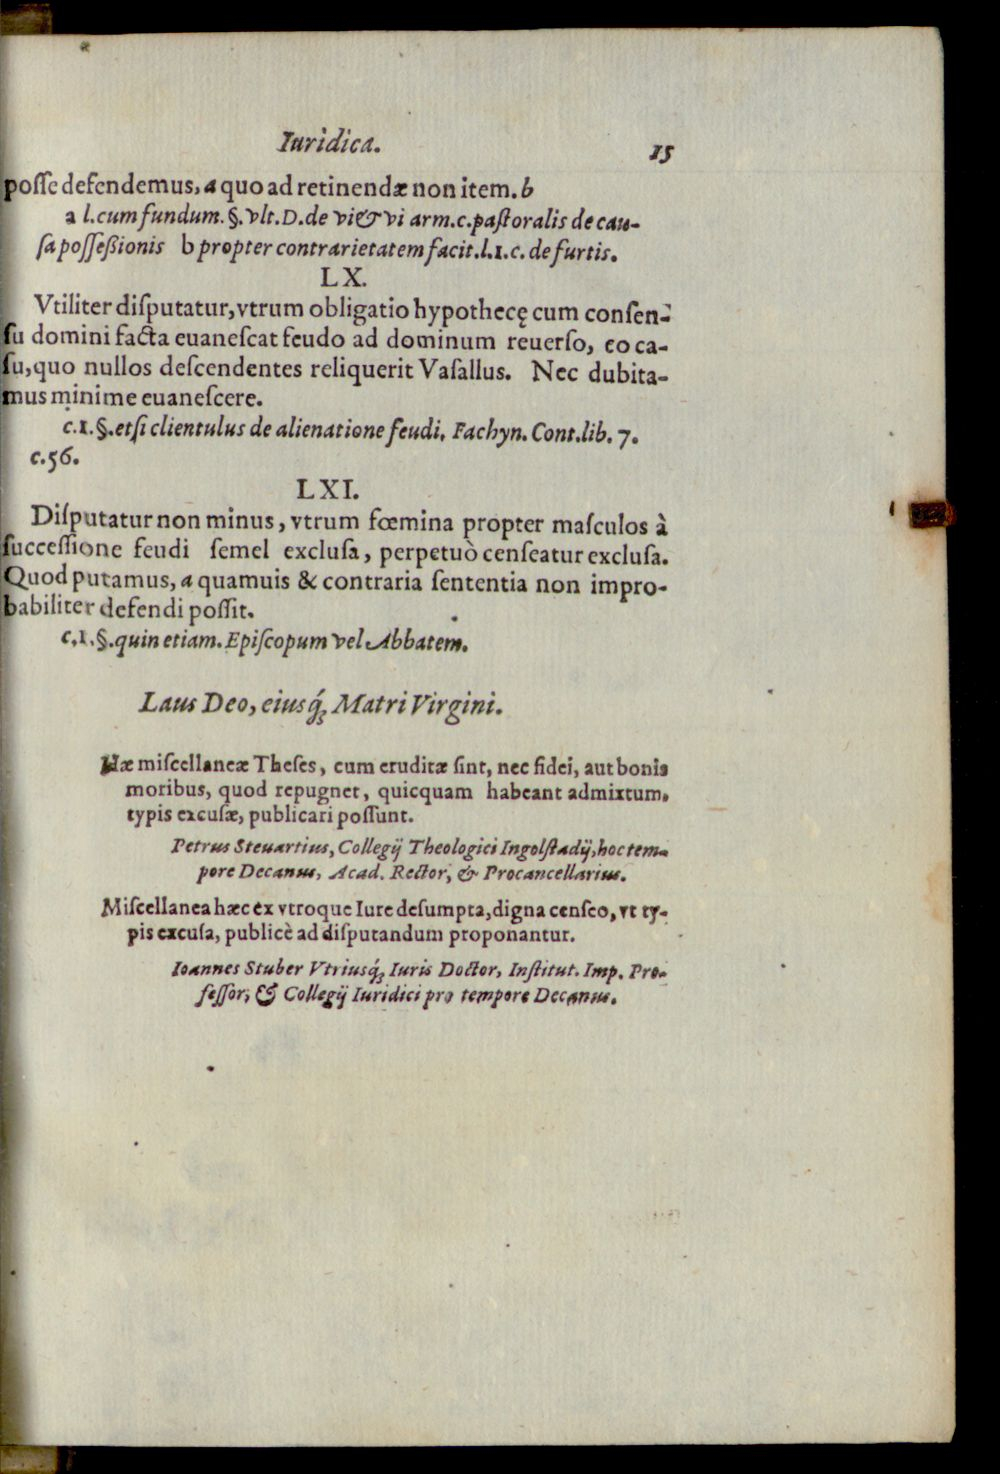 Iuridica. 15
posse defendemus, a quo ad retinendæ non item. b
a l. cum fundum. §. vlt. D. de vi & vi arm. c. pastoralis de cau-
sa possessionis b propter contrarietatem facit. l. 1. c. de furtis.
LX.
Vtiliter disputatur, vtrum obligatio hypothecę cum consen-
su domini facta euanescat feudo ad dominum reuerso, eo ca-
su, quo nullos descendentes reliquerit Vasallus. Nec dubita-
mus minime euanescere.
c. 1. §. etsi clientulus de alienatione feudi, Fachyn. Cont. lib. 7.
c. 56.
LXI.
Disputatur non minus, vtrum fœmina propter masculos à
successione feudi semel exclusa, perpetuò censeatur exclusa.
Quod putamus, a quamuis & contraria sententia non impro-
babiliter defendi possit.
c. 1. §. quin etiam. Episcopum vel Abbatem.
Laus Deo, eiusq́; Matri Virgini.
Hæ miscellaneæ Theses, cum eruditæ sint, nec fidei, aut bonis
moribus, quod repugnet, quicquam habeant admixtum,
typis excusæ, publicari possunt.
Petrus Steuartius, Collegij Theologici Ingolstadij, hoc tem-
pore Decanus, Acad. Rector, & Procancellarius.
Miscellanea hæc ex vtroque Iure desumpta, digna censeo, vt ty-
pis excusa, publicè ad disputandum proponantur.
Ioannes Stuber Vtriusq́; Iuris Doctor, Institut. Imp. Pro-
fessor, & Collegij Iuridici pro tempore Decanus.